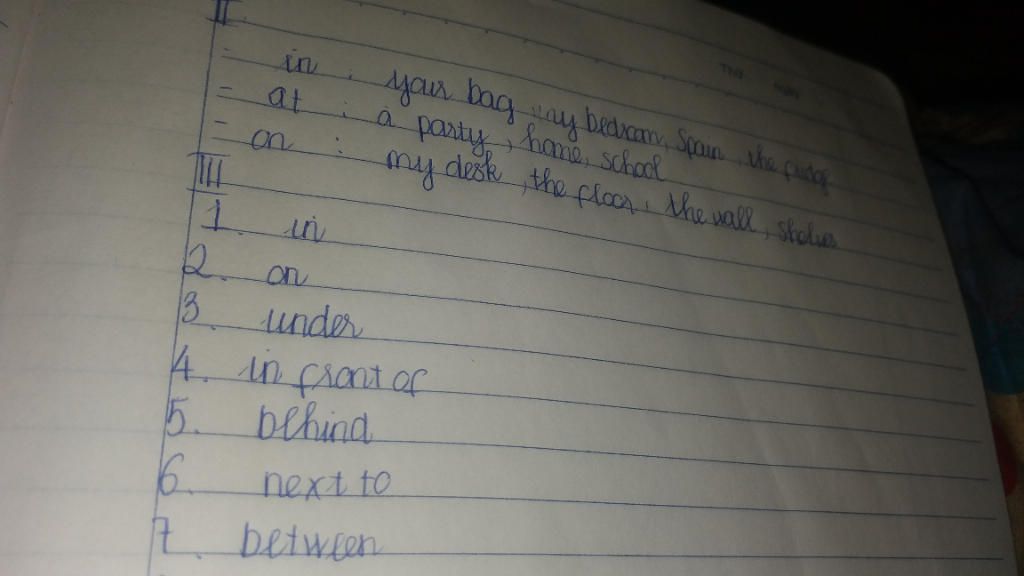 II
- in : your bag, my bedroom, Spain, the fridge
- at : a party, home, school
- on : my desk, the floor, the wall, shelves
III
1. in
2. on
3. under
4. in front of
5. behind
6. next to
7. between